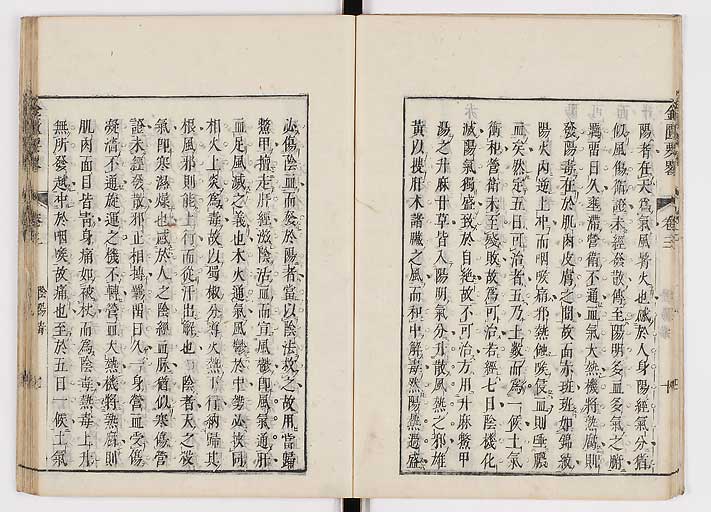 陽者在天為氣風將火也感於人身陽經氣分猶
似風傷衛證未經發散傳至陽明多血多氣之腑
羈留日久壅帶營衛不通血氣大熱機將熱腐則
發陽毒在於肌肉皮膚之間故面赤班班如錦紋
陽火內逆上冲而咽喉痛邪熱蝕喉侵血則唾膿
血矣然定五日可治者五乃土數而為一候土氣
衝和營衛未至殘敗故為可治若經七日陰機化
滅陽氣獨盛致於自絶故不可治方用升麻鱉甲
湯之升麻甘草皆入陽明氣分升散風熱之邪雄
黃以搜肝木諸臟之風而和中解毒然陽熱過盛
必傷陰血而及於陽者當以陰法救之故用當歸
鱉甲擅走肝經滋陰活血而宣風鬱即風氣通肝
血足風滅之義也木火通氣風鬱於中勢必挾同
相火上炎為毒故以蜀椒分導火熱下行納歸其
根風邪則能上行而從汗出解也 陰者天之殺
氣即寒濕燥也感於人之陰經血脉猶似寒傷營
證未經發散邪正相搏羈留日久一身營血受傷
凝滯不通旋運之機不轉營血大熱機將熱腐則
肌肉面目皆青身痛如被杖而為陰毒熱毒上升
無所發越冲於咽喉故痛也至於五日一候土氣
金匱要畧
卷三
陰陽毒